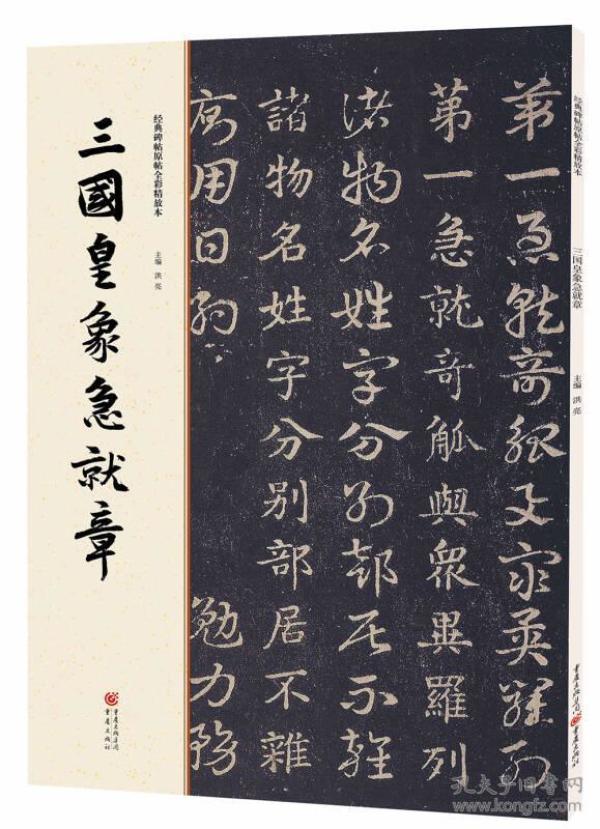 经典碑帖原帖全彩精放本
三國皇象急就章
主编 洪亮
第一急就奇觚與衆異羅列
第一急就奇觚與衆異羅列
諸物名姓字分别部居不雜
諸物名姓字分别部居不雜
用日約
勉力務
重庆出版集团
重庆出版社
经典碑帖原帖全彩精放本
三国皇象急就章
主编 洪亮
重庆出版集团
重庆出版社
孔夫子旧书网
www.kongfz.com